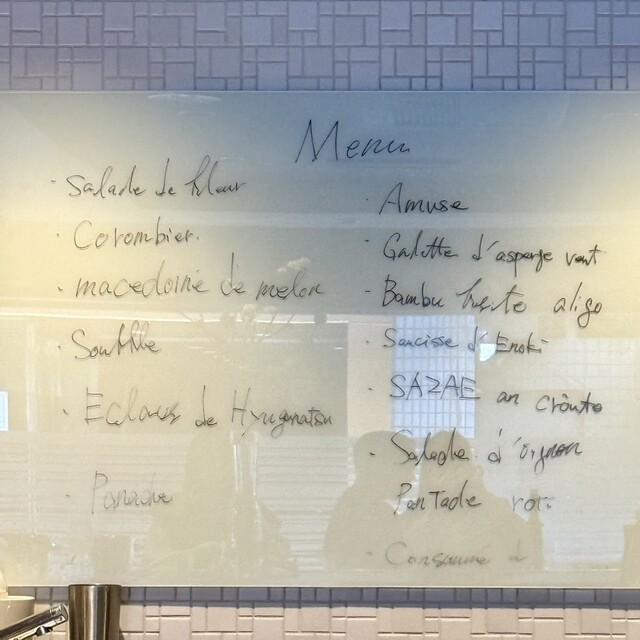 Menu
· Salade de fleur
· Corombier.
· macedoine de melon
· Souffle
· Eclaus de Hyuganatsu
· Panache
· Amuse
· Galette d'asperge vert
· Bambu aligo
· Saucisse d'Enoki
· SAZAE an croûte
· Salade d'oignon
PanTade roti
· Consomme d